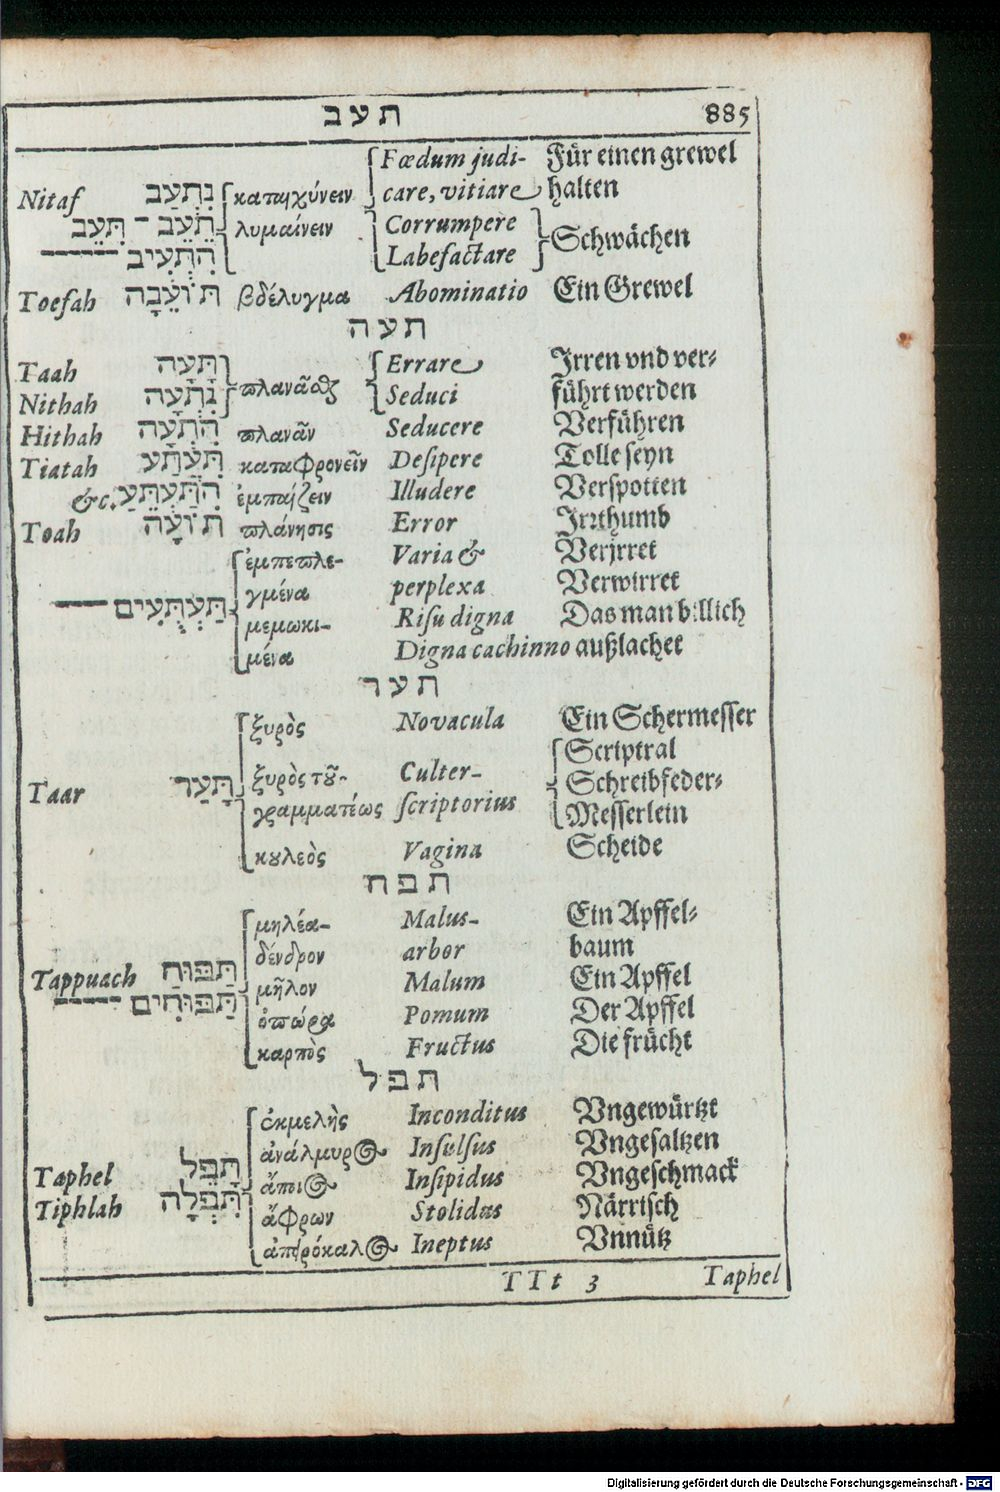 תעב 885
Fœdum judi- Für einen grewel
Nitaf נִתְעַב καταισχύνειν care, vitiare halten
תֵּעֵב - תִּעֵב λυμαίνειν Corrumpere Schwächen
הִתְעִיב Labefactare
Toefah תּוֹעֵבָה βδέλυγμα Abominatio Ein Grewel
תעה
Taah תָּעָה Errare Irren vnd ver-
Nithah נִתְעָה πλανᾶσθαι Seduci führt werden
Hithah הִתְעָה πλανᾶν Seducere Verführen
Tiatah תִּעְתַּע καταφρονεῖν Desipere Tolle seyn
&c. ἐμπαίζειν Illudere Verspotten
Toah תּוֹעָה πλάνησις Error Irrthumb
ἐμπεπλε- Varia & Verjrret
γμένα perplexa Verwirret
תַּעְתֻּעִים μεμωκι- Risu digna Das man billich
μένα Digna cachinno außlachet
תער
ξυρὸς Novacula Ein Schermesser
Scriptral
Taar תָּעַר ξυρὸς τοῦ- Culter- Schreibfeder-
γραμματέως scriptorius Messerlein
κουλεὸς Vagina Scheide
תפח
μηλέα- Malus- Ein Apffel-
δένδρον arbor baum
Tappuach תַּפּוּחַ μῆλον Malum Ein Apffel
תַּפּוּחִים ὀπώρα Pomum Der Apffel
καρπὸς Fructus Die frücht
תפל
ἐκμελὴς Inconditus Vngewürtzt
ἀνάλμυρος Insulsus Vngesaltzen
Taphel תָּפֵל ἄποιος Insipidus Vngeschmack
Tiphlah תִּפְלָה ἄφρων Stolidus Närrisch
ἀπειρόκαλος Ineptus Vnnütz
TTt 3 Taphel
Digitalisierung gefördert durch die Deutsche Forschungsgemeinschaft - DFG